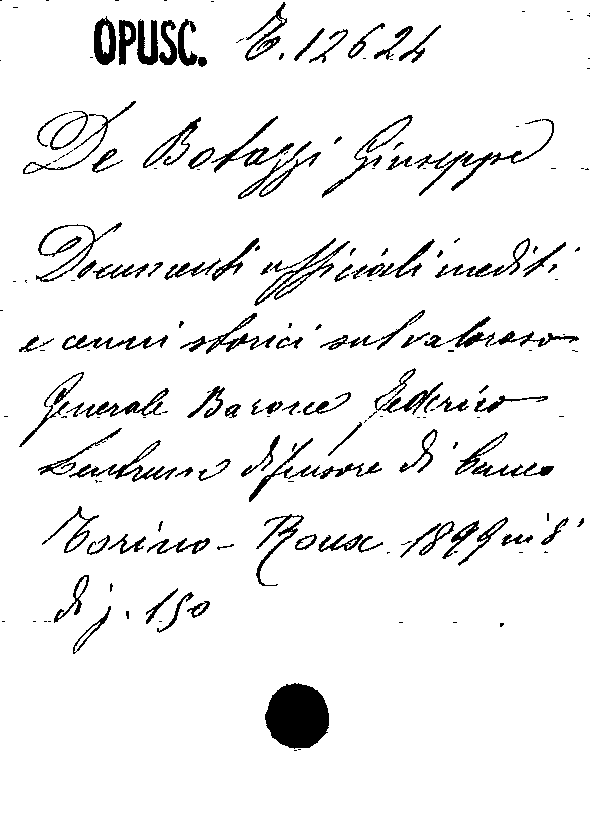 OPUSC. E. 12624
De Botazzi Giuseppe
Documenti ufficiali inediti
e cenni storici sul valoroso
Generale Barone Federico
Leutrum difensore di Cuneo
Torino - Roux 1899 in 8°
di p. 150